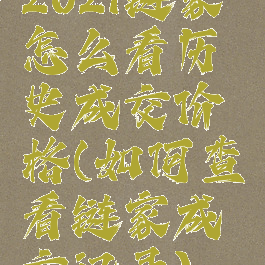 2021链家
怎么看历
史成交价
格(如何查
看链家成
交记录)